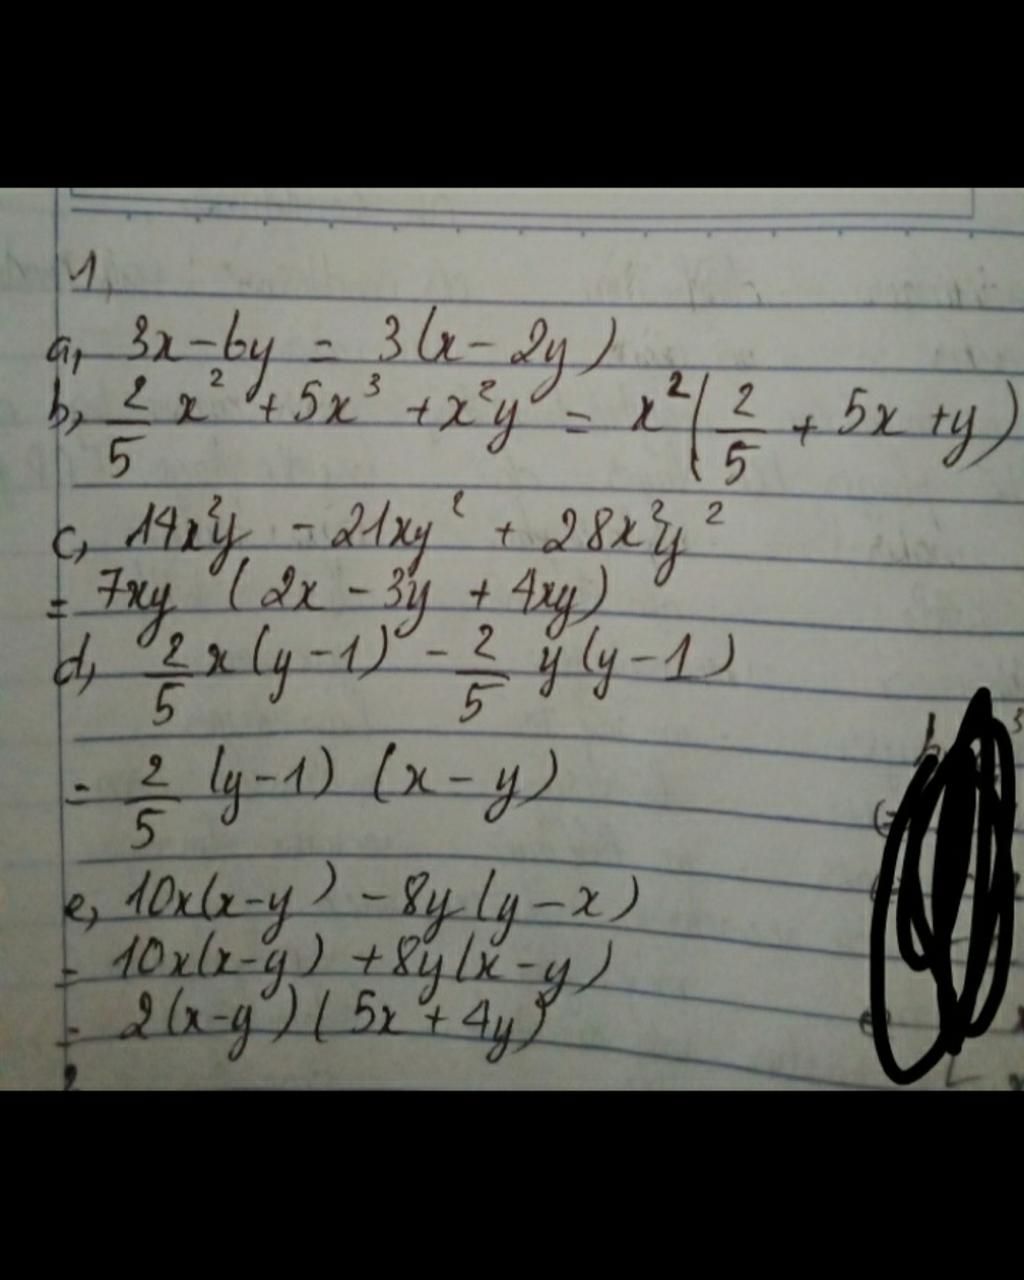 1,
a, 3x - 6y = 3(x - 2y)
b, 2/5 x² + 5x³ + x²y = x²(2/5 + 5x + y)
c, 14x²y - 21xy² + 28x²y²
= 7xy (2x - 3y + 4xy)
d, 2/5 x(y - 1) - 2/5 y(y - 1)
= 2/5 (y - 1) (x - y)
e, 10x(x - y) - 8y(y - x)
= 10x(x - y) + 8y(x - y)
= 2(x - y)(5x + 4y)